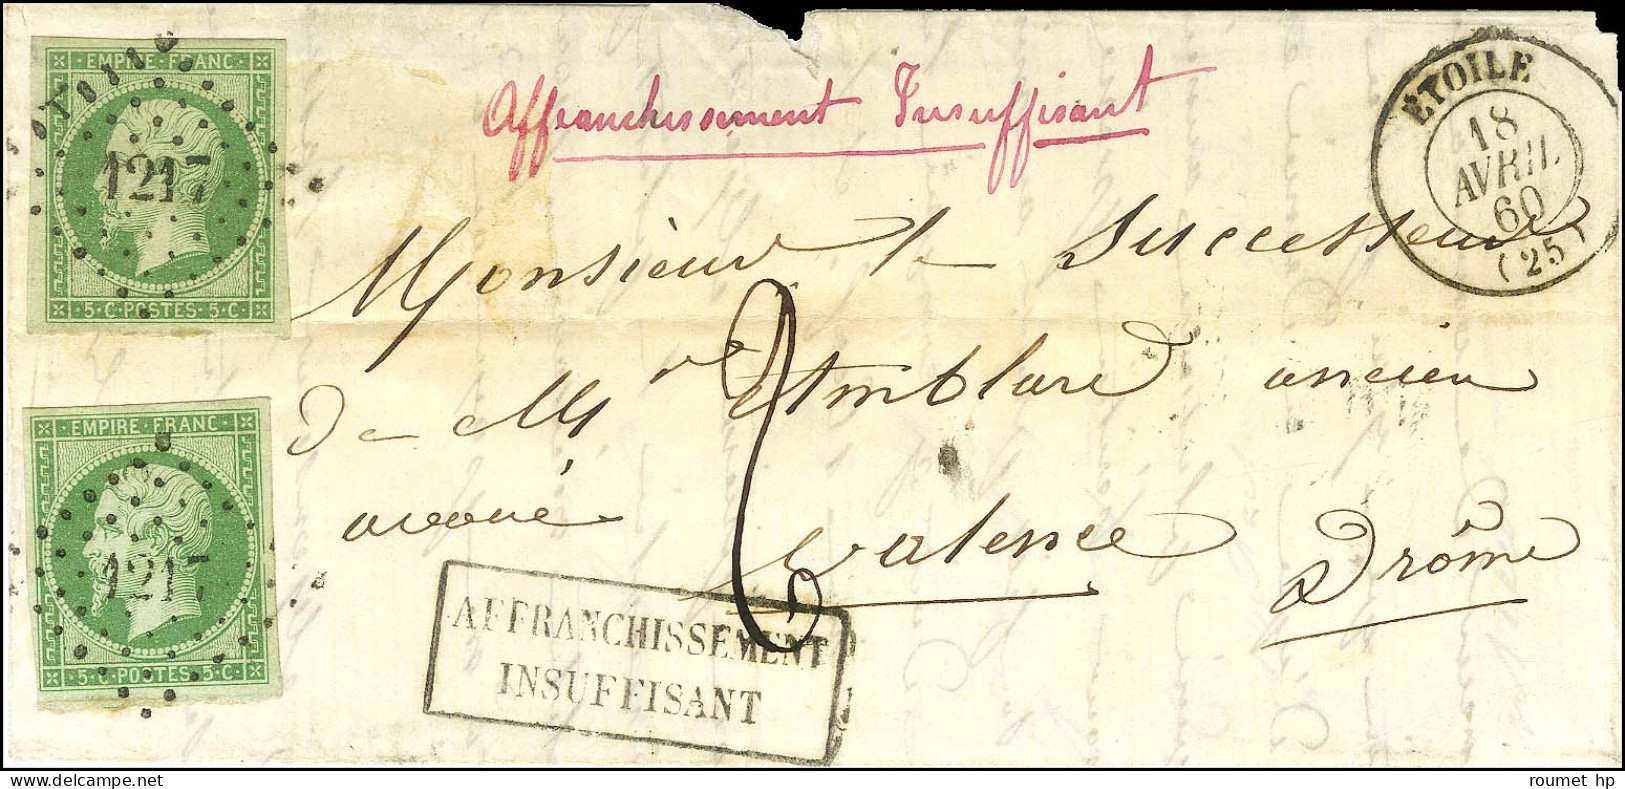 EMPIRE · FRANC ·
1217
· 5 · C · POSTES · 5 · C ·
EMPIRE · FRANC ·
1217
· 5 · C · POSTES · 5 · C ·
Affranchissement Insuffisant
ÉTOILE
18
AVRIL
60
(25)
Monsieur le Successeur
De Mr Amblard ancien
avoué
2
Valence
Drôme
AFFRANCHISSEMENT
INSUFFISANT
roumet hp